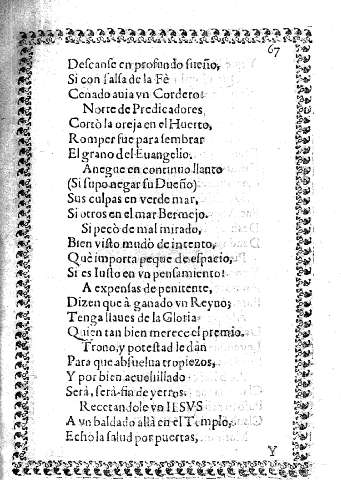 67
Descanse en profundo sueño,
Si con salsa de la Fè
Cenado auia vn Cordero.
Norte de Predicadores
Cortò la oreja en el Huerto,
Romper fue para sembrar
El grano del Euangelio.
Anegue en continuo llanto
(Si supo negar su Dueño)
Sus culpas en verde mar,
Si otros en el mar Bermejo.
Si pecò de mal mirado,
Bien visto mudò de intento,
Què importa peque de espacio,
Si es Iusto en vn pensamiento?
A expensas de penitente,
Dizen que à ganado vn Reyno;
Tenga llaues de la Gloria
Quien tan bien merece el premio.
Trono, y potestad le dàn
Para que absuelua tropiezos,
Y por bien acuchillado
Serà, serà fin de yerros.
Recetandole vn IESVS
A vn baldado allà en el Templo,
Echo la salud por puertas,
Y